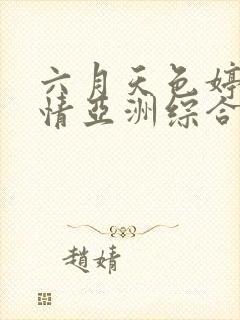 六月天色婷
情亚洲综合
趙婧